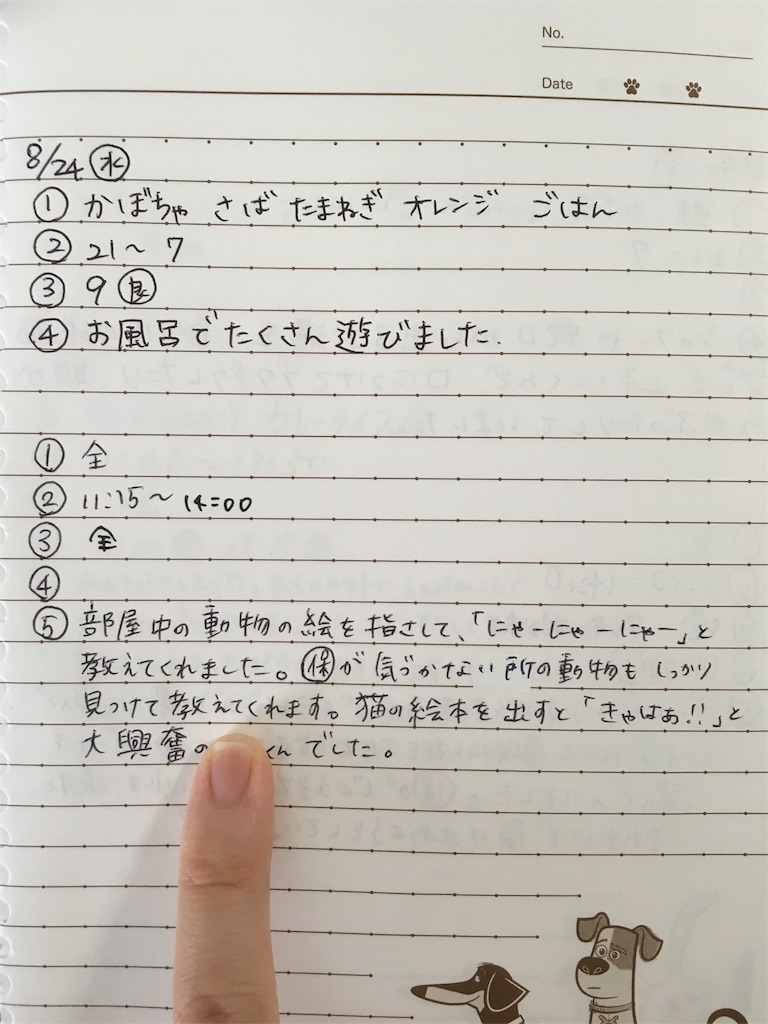 No.
Date
8/24 ㊌
① かぼちゃ さば たまねぎ オレンジ ごはん
② 21〜 7
③ 9 良
④ お風呂でたくさん遊びました.
① 全
② 11:15〜 14:00
③ 全
④
⑤ 部屋中の動物の絵を指さして、「にゃーにゃーにゃー」と
教えてくれました。保が気づかない所の動物もしっかり
見つけて教えてくれます。猫の絵本を出すと「きゃはぁ!!」と
大興奮の くんでした。